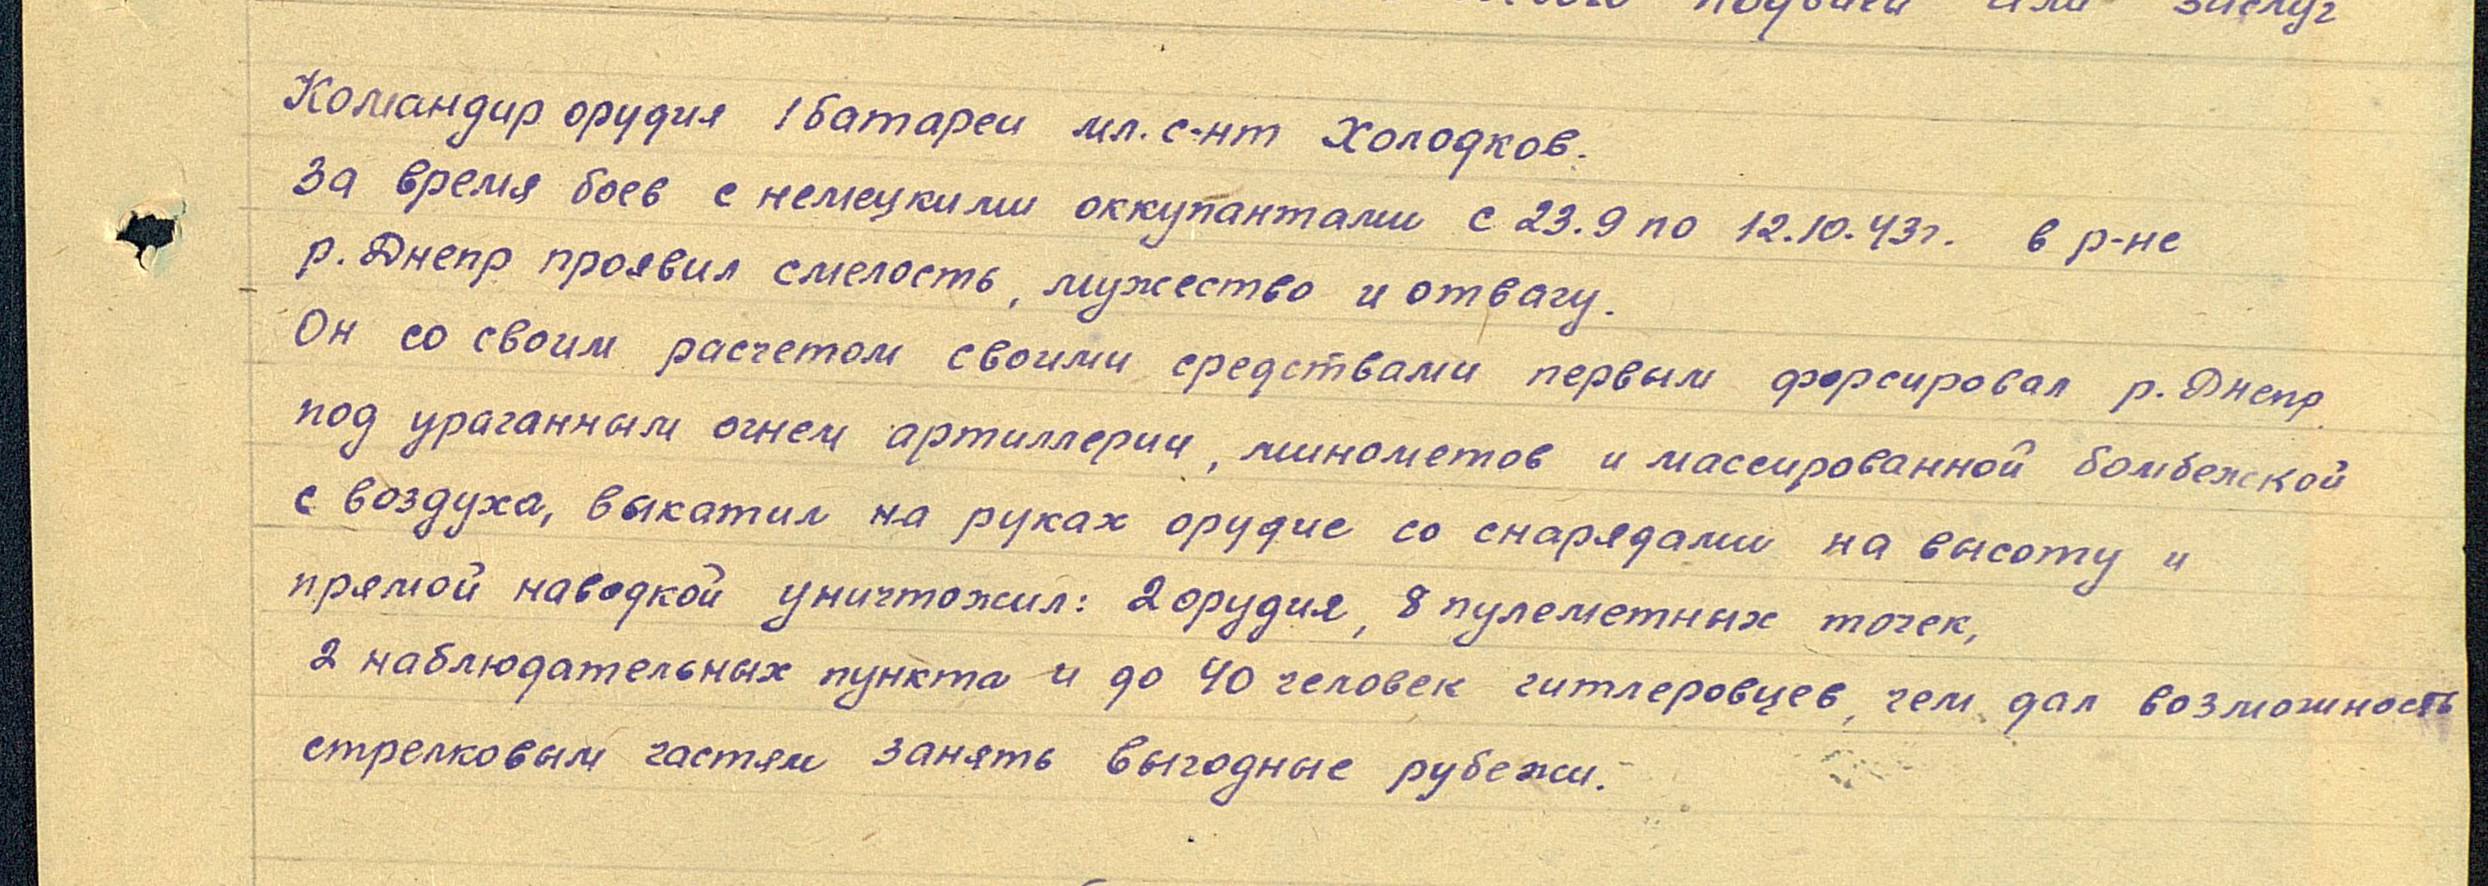 подвига или заслуг
Командир орудия 1 батареи мл. с-нт Холодков.
За время боев с немецкими оккупантами с 23.9 по 12.10.43г. в р-не
р. Днепр проявил смелость, мужество и отвагу.
Он со своим расчетом своими средствами первым форсировал р. Днепр
под ураганным огнем артиллерии, минометов и массированной бомбежкой
с воздуха, выкатил на руках орудие со снарядами на высоту и
прямой наводкой уничтожил: 2 орудия, 8 пулеметных точек,
2 наблюдательных пункта и до 40 человек гитлеровцев, чем дал возможность
стрелковым частям занять выгодные рубежи.